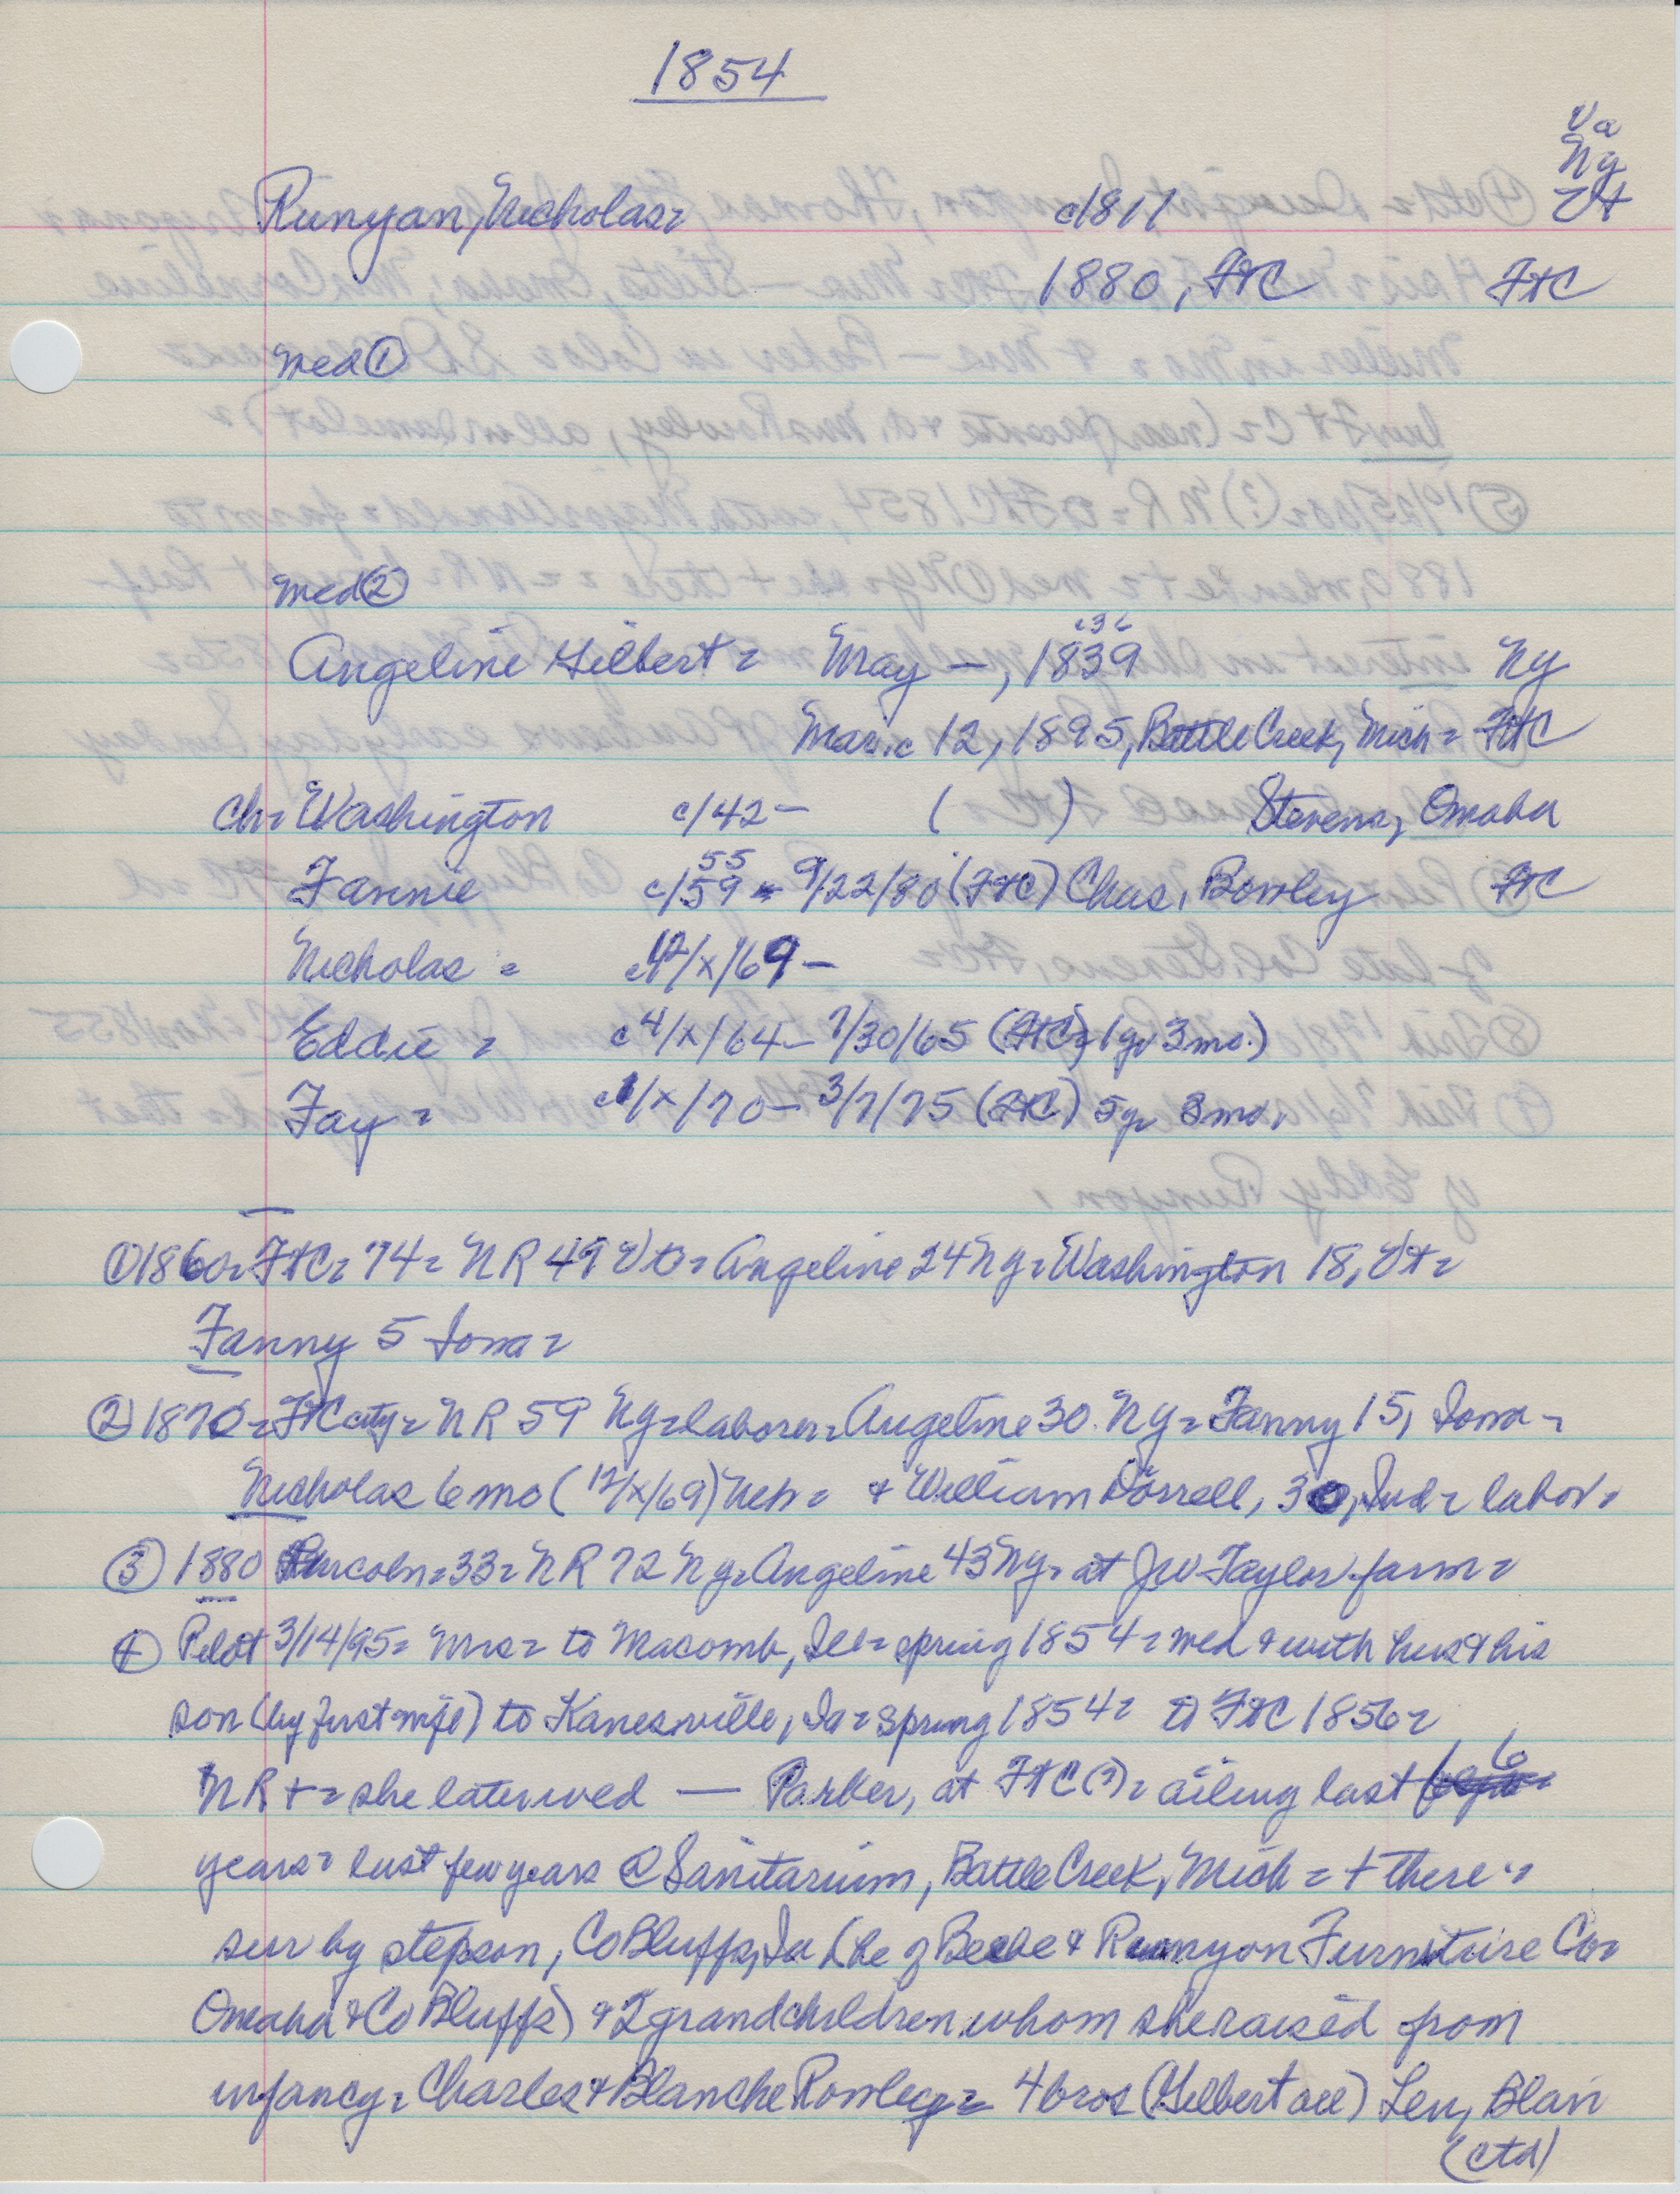 1854
Va
Ny
Runyan, Nicholas= c/1811 Vt
1880, FtC FtC
med ①
med ②
c36
Angeline Gilbert= May —, 1839 Ny
Mar. c 12, 1895, Battle Creek, Mich= FtC
ch= Washington c/42 — ( ) Stevens, Omaha
55
Fannie c/59 - 9/22/80 (FtC) Chas. Rowley FtC
Nicholas = c12/x/69 —
Eddie = c4/x/64 — 7/30/65 (FtC) 1 yr 3 mo.)
Fay = c1/x/70 — 3/7/75 (FtC) 5 yr 3 mo.
① 1860= FtC= 74= NR 49 Vt= Angeline 24 Ny= Washington 18, Vt=
Fanny 5 Iowa=
② 1870= FtC city= NR 59 Ny= laborer= Angeline 30 Ny= Fanny 15, Iowa=
Nicholas 6 mo (12/x/69) Neb= & William Dorrell, 30, Ind= labor=
③ 1880 Lincoln= 33= NR 72 Ny= Angeline 43 Ny= at JW Taylor farm=
④ Pilot 3/14/95= Mrs= to Macomb, Ill= spring 1854= wed & with hus & his
son (by first wife) to Kanesville, Ia= spring 1854= to FtC 1856=
NR += she later wed — Parker, at FtC (?)= ailing last 6
years= last few years @ Sanitarium, Battle Creek, Mich= + there=
sur by stepson, Co Bluffs, Ia (he of Beebe & Runyon Furniture Co=
Omaha & Co Bluffs) & 2 grandchildren whom she raised from
infancy= Charles & Blanche Rowley= 4 bros (Gilbert all) Lew, Blair
(ctd)